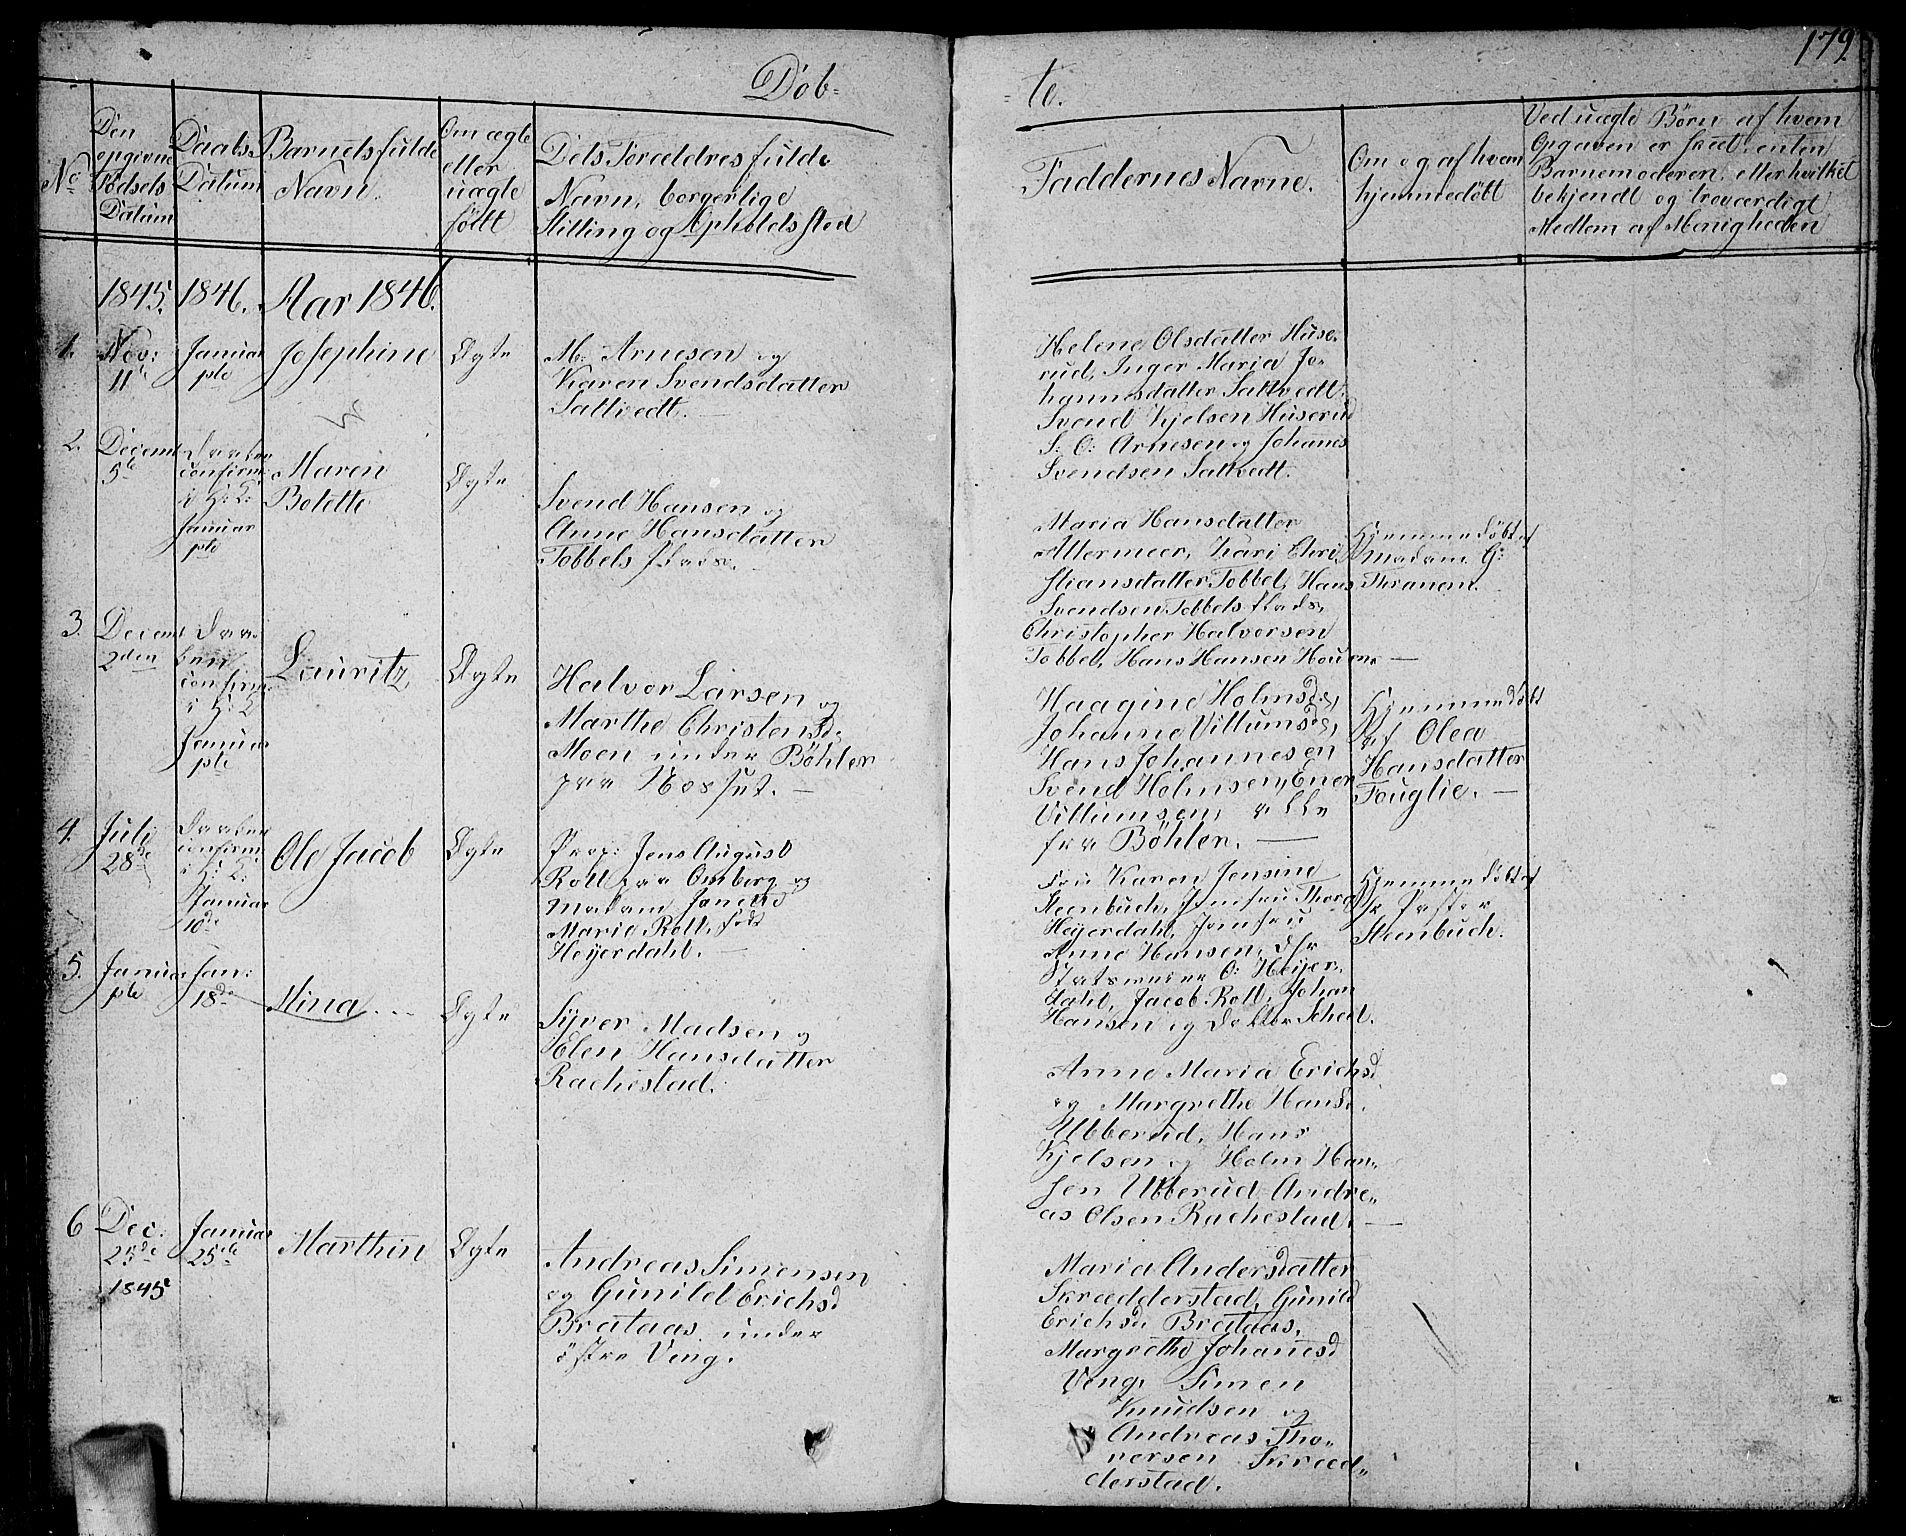 179.
Döb-
-te.
No
Den
opgivne
Födsels
Datum
Daabs-
Datum
Barnets fulde
Navn.
Om ægte
eller
uægte
födt
Dets Forældres fulde
Navn, borgerlige
Stilling og Opholds sted
Faddernes Navne.
Om og af hvem
hjemmedöbt
Ved uægte Börn af hvem
Opgaven er skeet, enten
Barnemoderen, eller hvilket
bekjendt og troværdigt
Medlem af Menigheden
1845. 1846. Aar 1846.
1.
Nov:
11
Januar
1ste
Josephine
Ægte
M: Arnesen og
Karen Svendsdatter
Sattvedt.
Helene Olsdatter Huse-
rud, Inger Maria Jo-
hannsdatter Sattvedt.
Svend Kjelsen Huserud
S: O: Arnesen og Johanes
Svendsen Sattvedt.
2.
Decemb
5te
Daaben
confirm:
i H: K:
Januar
1ste
Maren
Botette
Ægte
Svend Hansen og
Anne Hansdatter
Tobbels Plads.
Maria Hansdatter
Altermeer, Kari Chri
stiansdatter Tobbel, Hans
Svendsen Tobbels Plads,
Christopher Halvorsen
Tobbel, Hans Hansen Houen. —
Hjemmedöbt af
Madam G:
Thranem.
3.
Decemb
2den
Daa-
ben
confirm:
i H: K
Januar
1ste
Lauritz
Ægte
Halvor Larsen og
Marthe Christensd.
Moen under Böhler
paa Næsset. —
Haagine Holmsd.,
Johanne Villumsd.,
Hans Johannesen
Svend Holmsen, Ener
Villumsen, alle
fra Böhler. —
Hjemmedöbt
af Olea
Hansdatter
Fouglie. —
4.
Juli
28de
Daaben
confirm:
i H: K:
Januar
10de
Ole Jacob
Ægte
Prop: Jens August
Roll paa Omberg og
Madam Janette
Marie Roll, född
Heyerdahl. —
Fru Karen Jensine
Steenbuch, Jomfru Thora
Heyerdahl, Jomfru
Anne Hansen, Dhr
O: Heyer-
dahl, Jacob Roll, Johan
Hansen og Doktor Scheel.
Hjemmedöbt af
Hr Pastor
Steenbuch.
5.
Januar
1ste
Jan:
18de
Stina
Ægte
Syver Madsen og
Elen Hansdatter
Rachestad.
Anne Maria Erichsd
og Margrethe Hansd.
Ubberud, Hans
Kjelsen og Holm Han-
sen Ubberud, Andre-
as Olsen Rachestad. —
6
Dec:
25de
1845
Januar
25de
Marthin
Ægte
Andreas Simensen
og Gunild Erichsd
Brataas under
östre Veng.
Maria Andersdatter
Skrædderstad, Gunild
Erichsd Brataas,
Margrethe Johanesd
Veng, Simen
Knudsen og
Andreas Tho-
rersen Skræd-
derstad.